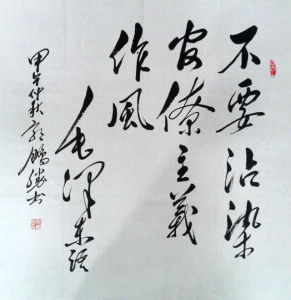 不要沾染
官僚主義
作風
毛澤東語
甲午仲秋彭鵬勝书